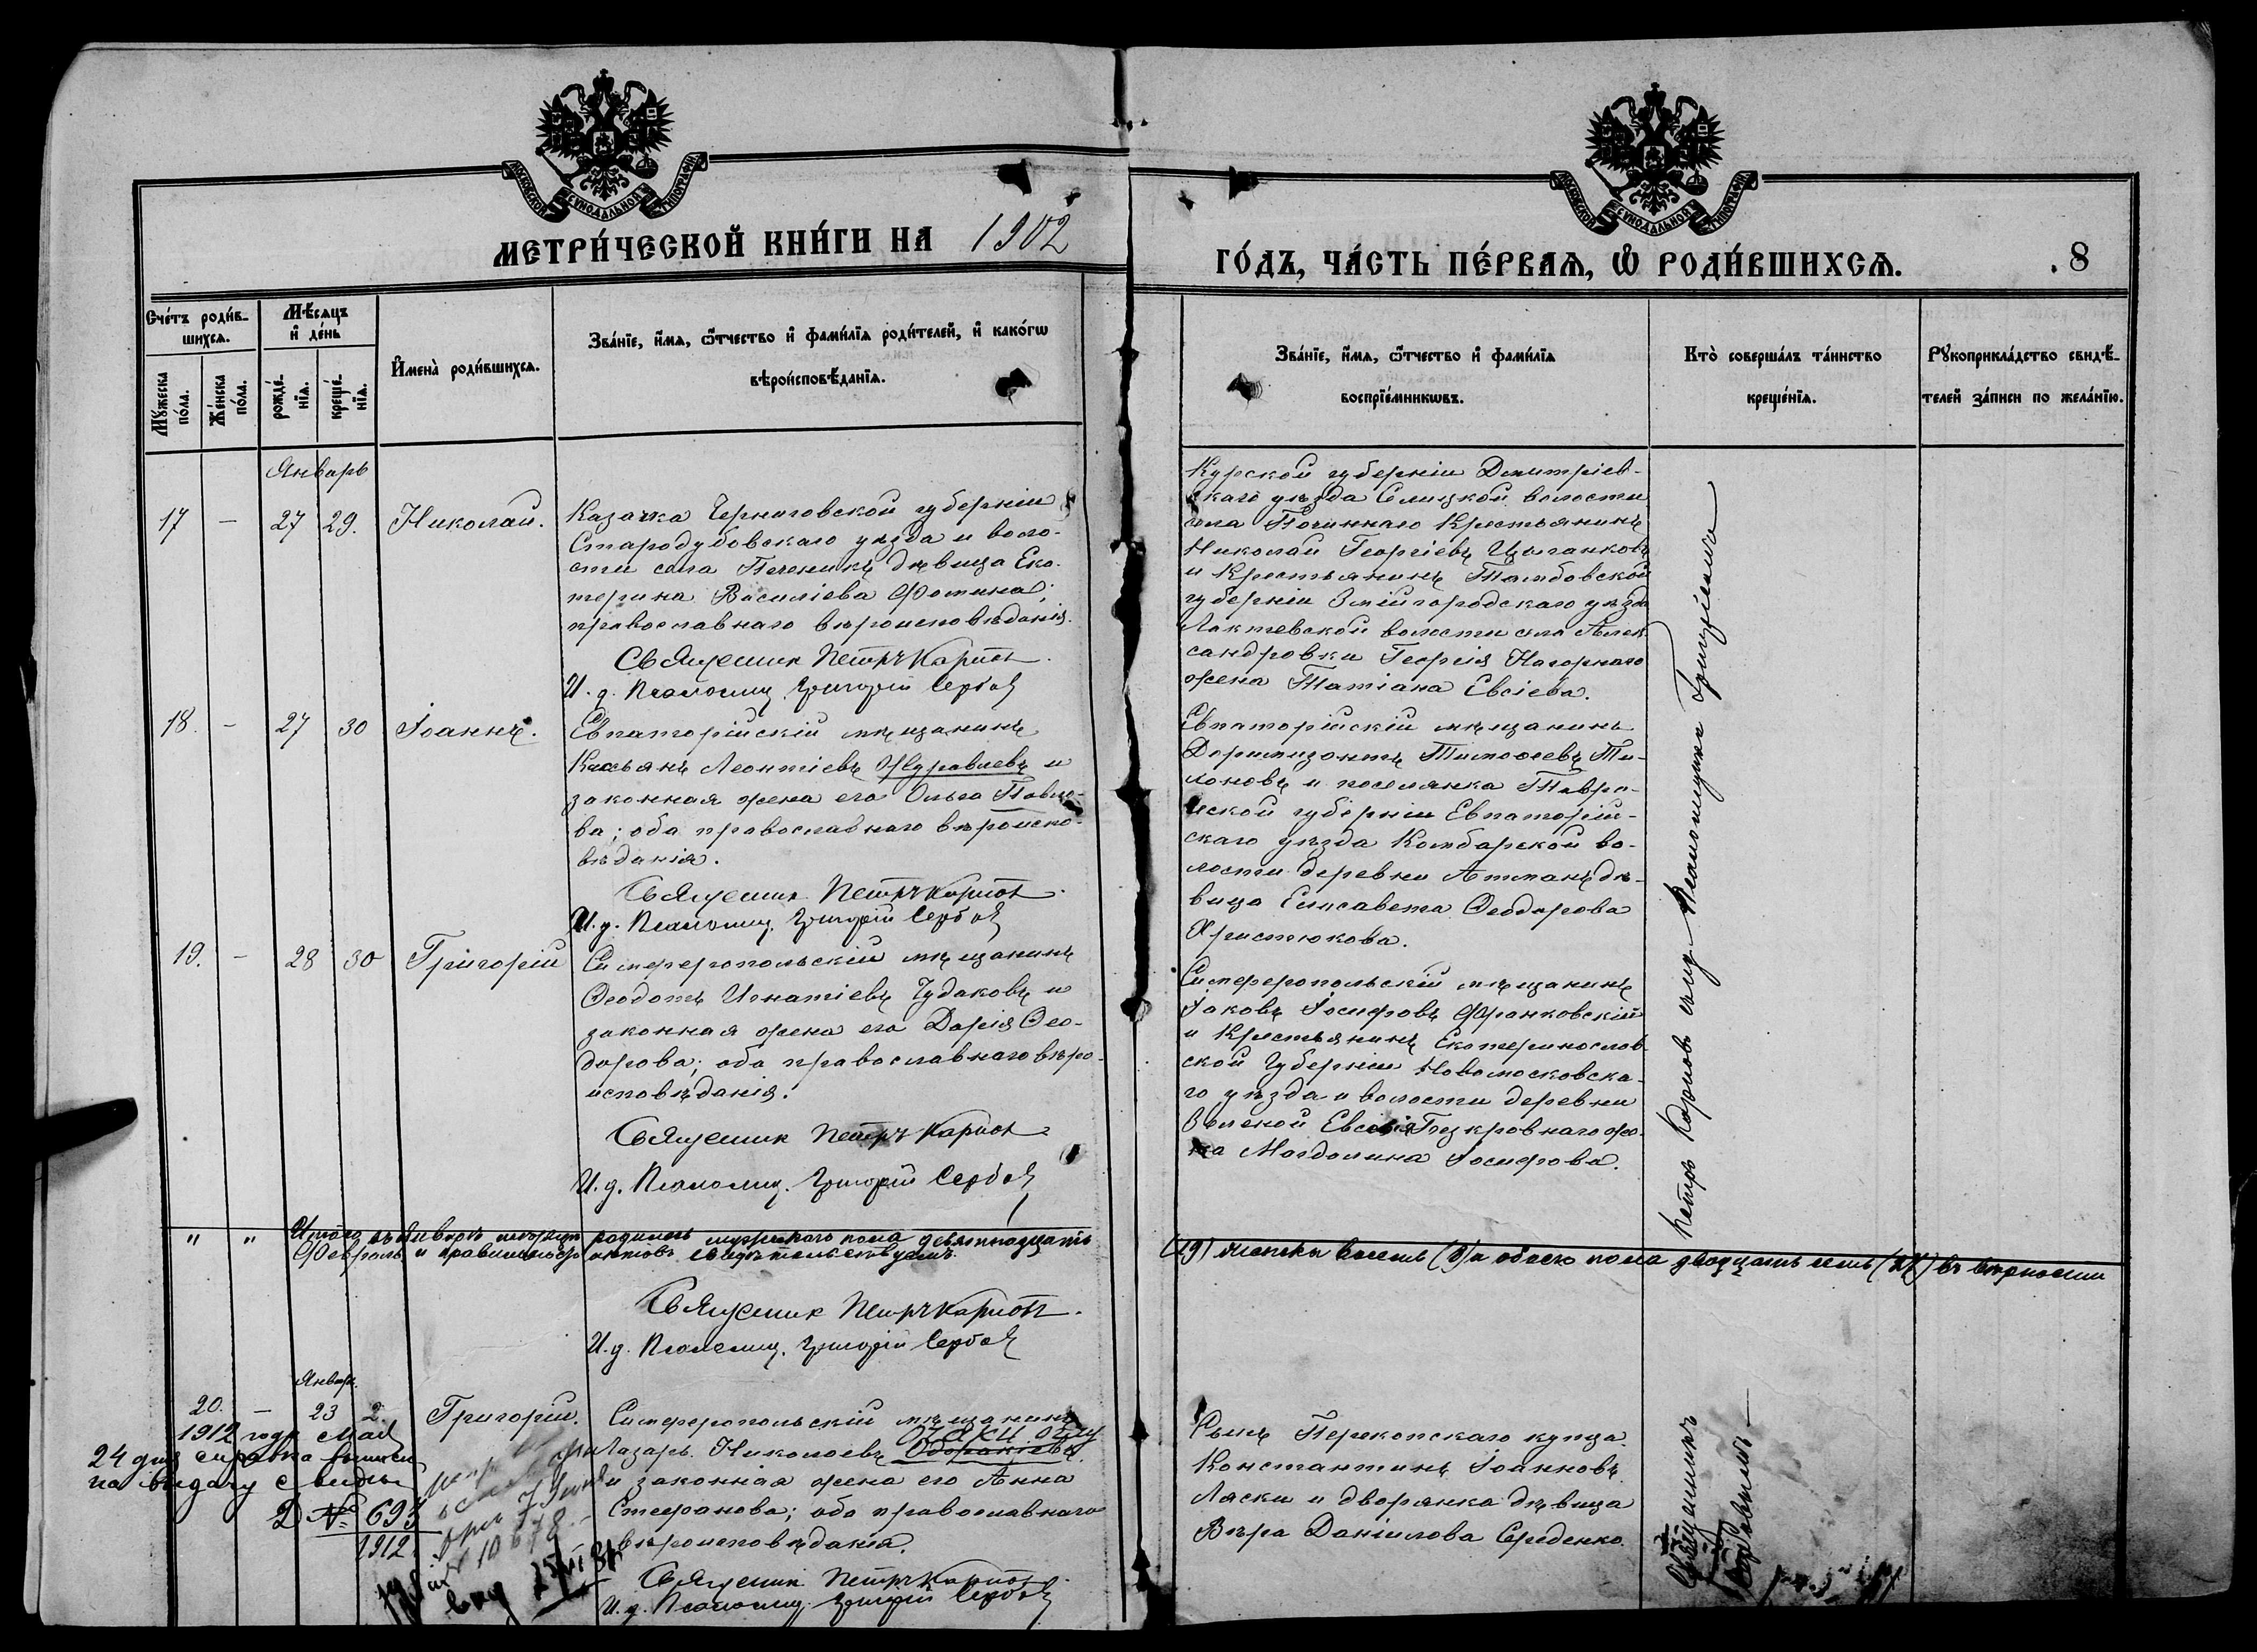 МОСКОВСКОЙ СѴНОДАЛЬНОЙ ТИПОГРАФІИ
МОСКОВСКОЙ СѴНОДАЛЬНОЙ ТИПОГРАФІИ
МЕТРИ́ЧЕСКОЙ КНИ́ГИ НА 1902
ГО́ДЪ, ЧА́СТЬ ПЕ́РВАЯ, Ѡ РОДИ́ВШИХСЯ.
8
Сче́тъ роди́в-
шихся.
Мꙋжеска
по́ла.
Же́нска
по́ла.
Мѣ́сяцъ
и҆ де́нь
рожде́-
нїя.
креще́-
нїя.
И҆мена̀ роди́вшихся.
Зва́нїе, и҆́мя, ѻ҆́тчество и҆ фами́лїя роди́телей, и҆ како́гѡ
вѣроисповѣ́данїя.
Зва́нїе, и҆́мя, ѻ҆́тчество и҆ фами́лїя
воспрїе́мникѡвъ.
Кто̀ соверша́лъ та́инство
креще́нїя.
Рꙋкоприкла́дство свидѣ́-
телей за́писи по жела́нїю.
Январь
17 - 27 29. Николай.
Казачка Черниговской губерніи
Стародубовскаго уѣзда и воло-
сти села Печеникъ дѣвица Ека-
терина Василіева Фомина;
православнаго вѣроисповѣданія.
Священник Петръ Карпов.
И. д. Псаломщ. Григорій Сербов
Курской губерніи Дмитріев-
скаго уѣзда Селицкой волости
села Починнаго Крестьянинъ
Николай Георгіевъ Цыганковъ
и Крестьянинъ Тамбовской
губерніи уѣзда
волости села Алек-
сандровки Георгія Нагорнаго
жена Татіана Евсіева.
18. - 27 30 Іоаннъ.
Евпаторійскій мѣщанинъ
Касьянъ Леонтіевъ Журавлевъ и
законная жена его Ольга Павло-
ва; оба православнаго вѣроиспо-
вѣданія.
Священник Петръ Карпов.
И. д. Псаломщ. Григорій Сербов
Евпаторійскій мѣщанинъ
Доримедонтъ Тимофеевъ Ти-
хоновъ и поселянка Таври-
ческой губерніи Евпаторій-
скаго уѣзда Камбарской во-
лости деревни Атманъ дѣ-
вица Елисавета Феодорова
Христюкова.
19. - 28 30 Григорій
Симферопольскій мѣщанинъ
Феодотъ Игнатіевъ Чудаковъ и
законная жена его Дарія Фео-
дорова; оба православнаго вѣро-
исповѣданія.
Священник Петръ Карпов
И. д. Псаломщ. Григорій Сербов
Симферопольскій мѣщанинъ
Іаковъ Іосифовъ Франковскій
и Крестьянинъ Екатеринослав-
ской Губерніи Новомосковска-
го уѣзда и волости деревни
Евсевія же-
на Магдалина Іосифова.
" " Итого въ Январѣ мѣсяцѣ родилось мужского пола девятнадцать
(19) женска восемь (8) а обоего пола двадцать семь (27) въ вѣрности
Февраль и правильности актовъ свидѣтельствуемъ.
Священник Петръ Карпов.
И. д. Псаломщ. Григорій Сербов
Петръ Карповъ съ Псаломщика Григоріемъ
Январ.
20. - 23 2. Григорій.
Симферопольскій мѣщанинъ
Лазарь Николаевъ
и законная жена его Анна
Стефанова; оба православнаго
вѣроисповѣданія.
Священник Петръ Карпов.
И. д. Псаломщ. Григорій Сербов
Сынъ Перекопскаго купца
Константинъ Іоанновъ
Ляски и дворянка дѣвица
Вѣра Даніилова Середенко.
Священникъ
1912 года Мая
24 дня справка
на выдачу свидѣ
Д № 693
1912